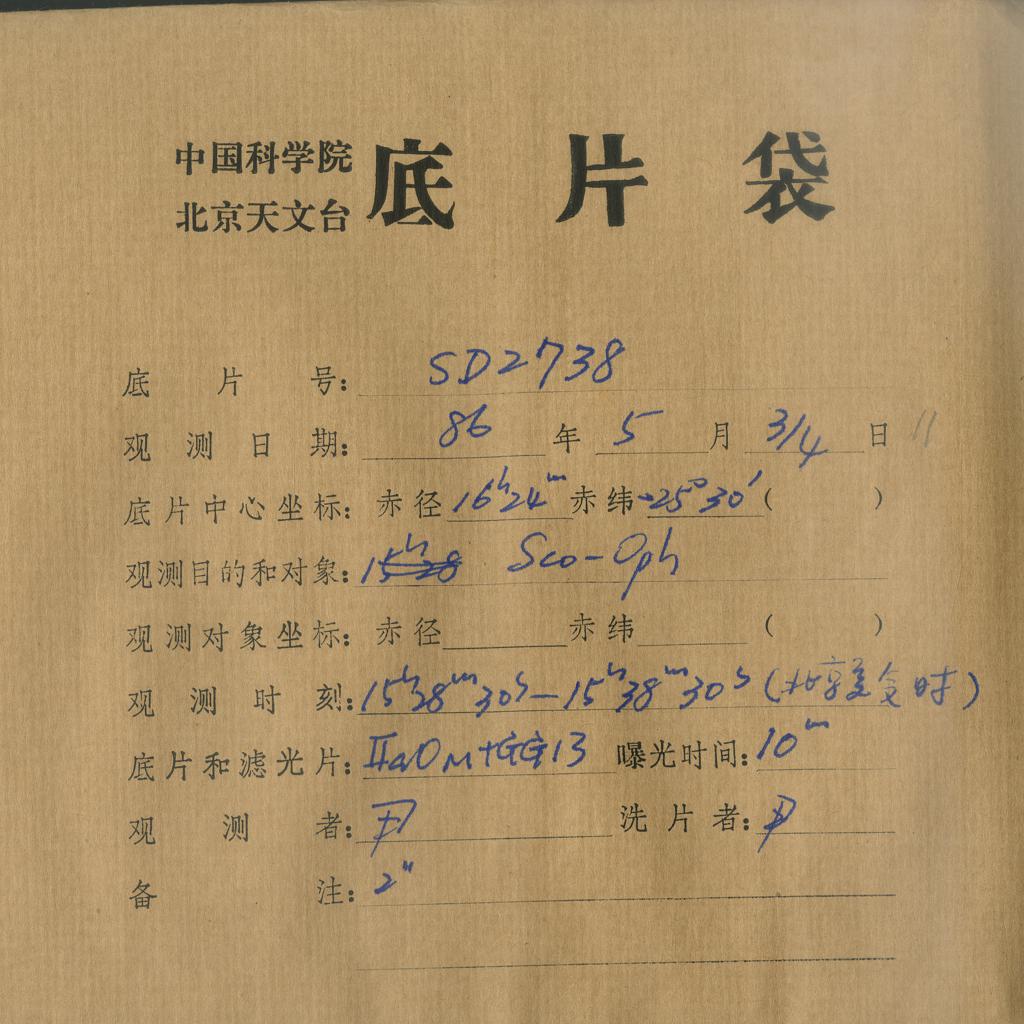 中国科学院
北京天文台
底片袋
底片号: SD2738
观测日期: 86年5月3/4日 11
底片中心坐标: 赤径16h24m赤纬-25°30′( )
观测目的和对象: 15h28 Sco-Oph
观测对象坐标: 赤径 赤纬 ( )
观测时刻: 15h28m30s—15h38m30s(北京夏令时)
底片和滤光片: IIaO+GG13 曝光时间: 10m
观测者: 洗片者:
备注: 2"